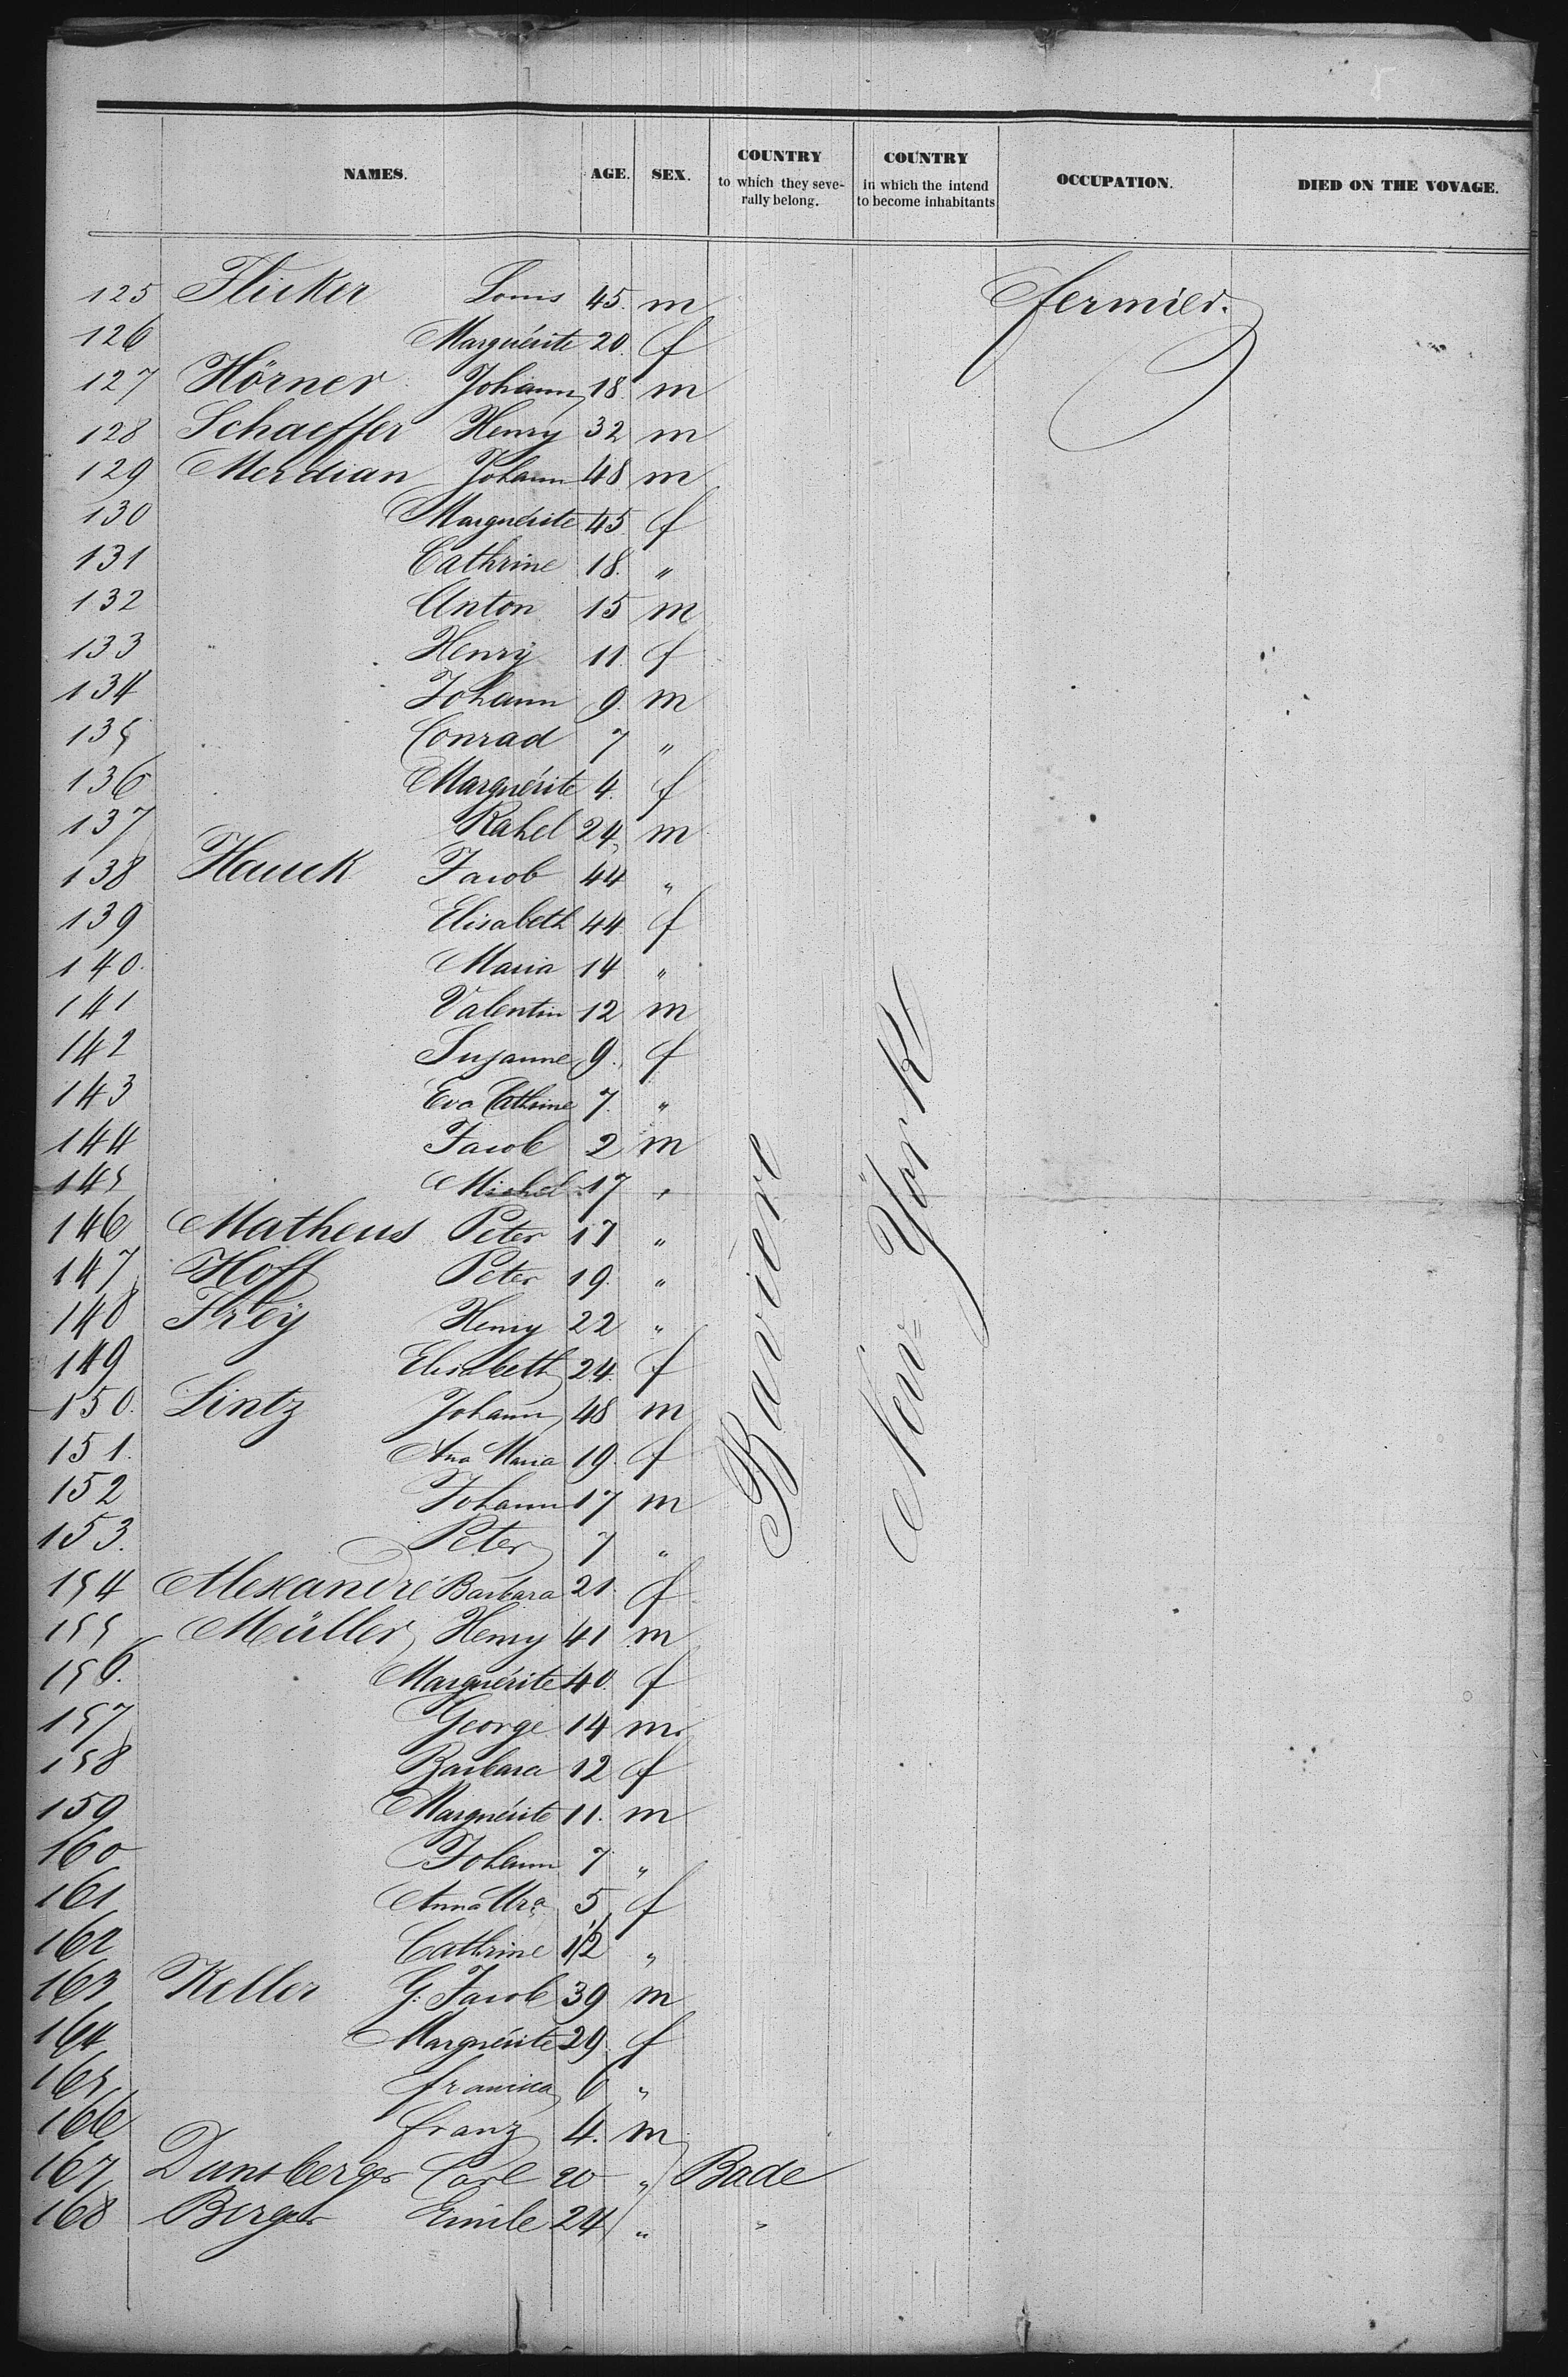 NAMES. AGE. SEX. COUNTRY to which they seve-rally belong. COUNTRY in which the intend to become inhabitants OCCUPATION. DIED ON THE VOYAGE.
125 Flicker Louis 45. m fermier.
126 Marguérite 20. f
127 Hörner Johann 18. m
128 Schaeffer Henry 32 m
129 Merdian Johann 48 m
130 Marguérite 45. f
131 Cathrine 18. "
132 Anton 15 m
133 Henry 11. f
134 Johann 9. m
135 Conrad 7 "
136 Marguérite 4. f
137 Rahel 24, m
138 Hauck Jacob 44 "
139 Elisabeth 44. f
140. Maria 14 "
141 Valentin 12 m
142 Susanne 9. f
143 Eva Cathrine 7. "
144 Jacob 2 m
145 Michel 17 "
146 Matheus Peter 17 "
147 Hoff Peter 19. "
148 Freÿ Henry 22 "
149 Elisabeth 24. f
150. Lintz Johann 48 m
151. Ana Maria 19. f
152 Johann 17 m
153. Peter 7 "
154 Alexandre Barbara 21. f
155 Müller Henry 41 m
156. Marguérite 40. f
157 George 14 m.
158 Barbara 12 f
159 Marguérite 11. m
160 Johann 7 "
161 Anna Mra 5 f
162 Cathrine 1/2 "
163 Keller G. Jacob 39 m
164 Marguérite 29. f
165 6 "
166 franz 4. m
167 Carl 20 " Bade
168 Berger Emile 24 " "
Baviere
New=York